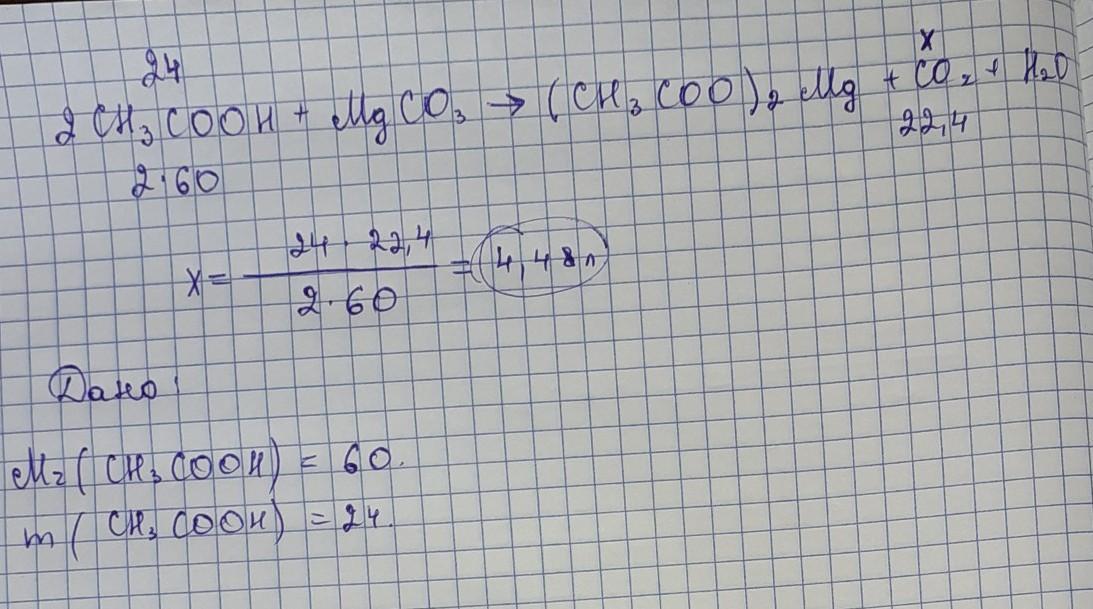 24 x
2 CH₃COOH + MgCO₃ → (CH₃COO)₂Mg + CO₂ + H₂O
2·60 22,4
x = 24 · 22,4 / 2·60 = 4,48 л
Дано:
Mr(CH₃COOH) = 60.
m(CH₃COOH) = 24.